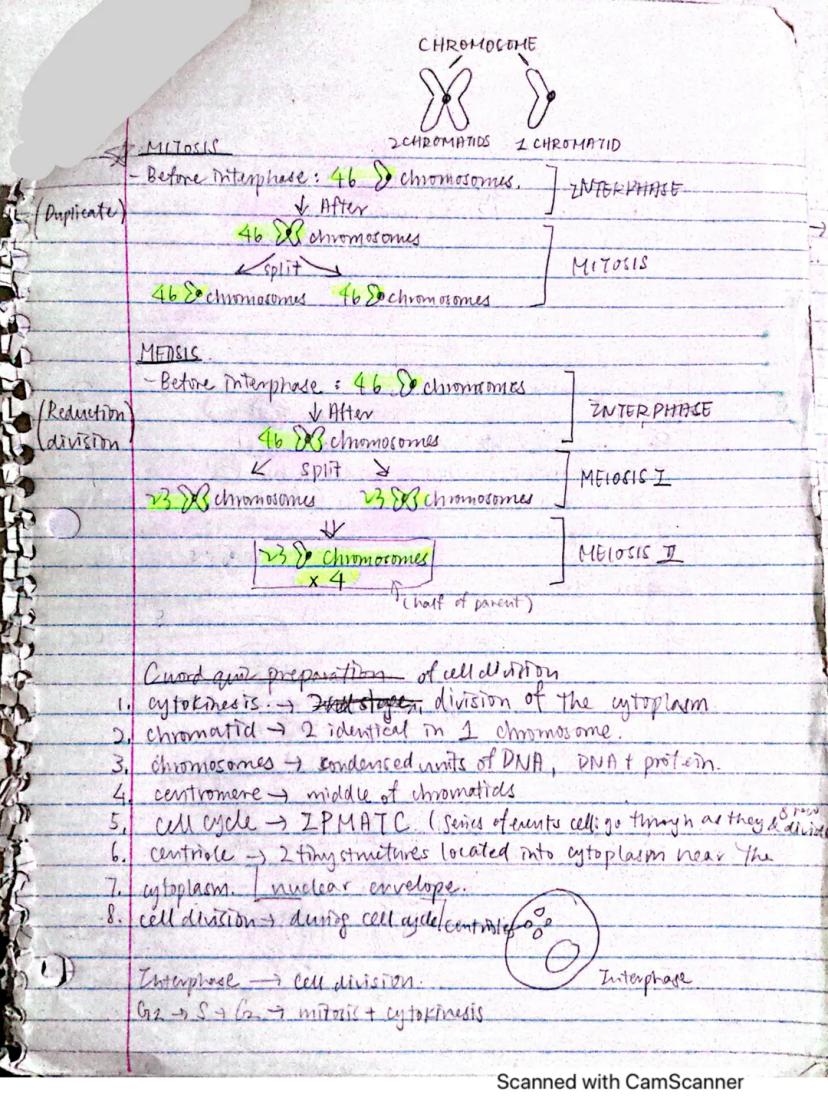 CHROMOSOME
2 CHROMATIDS 1 CHROMATID
MITOSIS
- Before interphase : 46 chromosomes. INTERPHASE
(Duplicate) ↓ After
46 chromosomes
split MITOSIS
46 chromosomes 46 chromosomes
MEOSIS
- Before interphase : 46 chromosomes
(Reduction division) ↓ After INTERPHASE
46 chromosomes
split
23 chromosomes 23 chromosomes MEIOSIS I
⇓
23 chromosomes MEIOSIS II
x 4
(half of parent)
quiz preparation of cell division
1. cytokinesis. → 2nd stage, division of the cytoplasm
2. chromatid → 2 identical in 1 chromosome.
3. chromosomes → condensed units of DNA, DNA + protein.
4. centromere → middle of chromatids
5. cell cycle → IPMATC (series of events cells go through as they & divide
6. centriole → 2 tiny structures located into cytoplasm near the
7. cytoplasm. nuclear envelope.
8. cell division → during cell cycle centrioles
Interphase → cell division. Interphase
G2 → S → G2 → mitosis + cytokinesis
Scanned with CamScanner